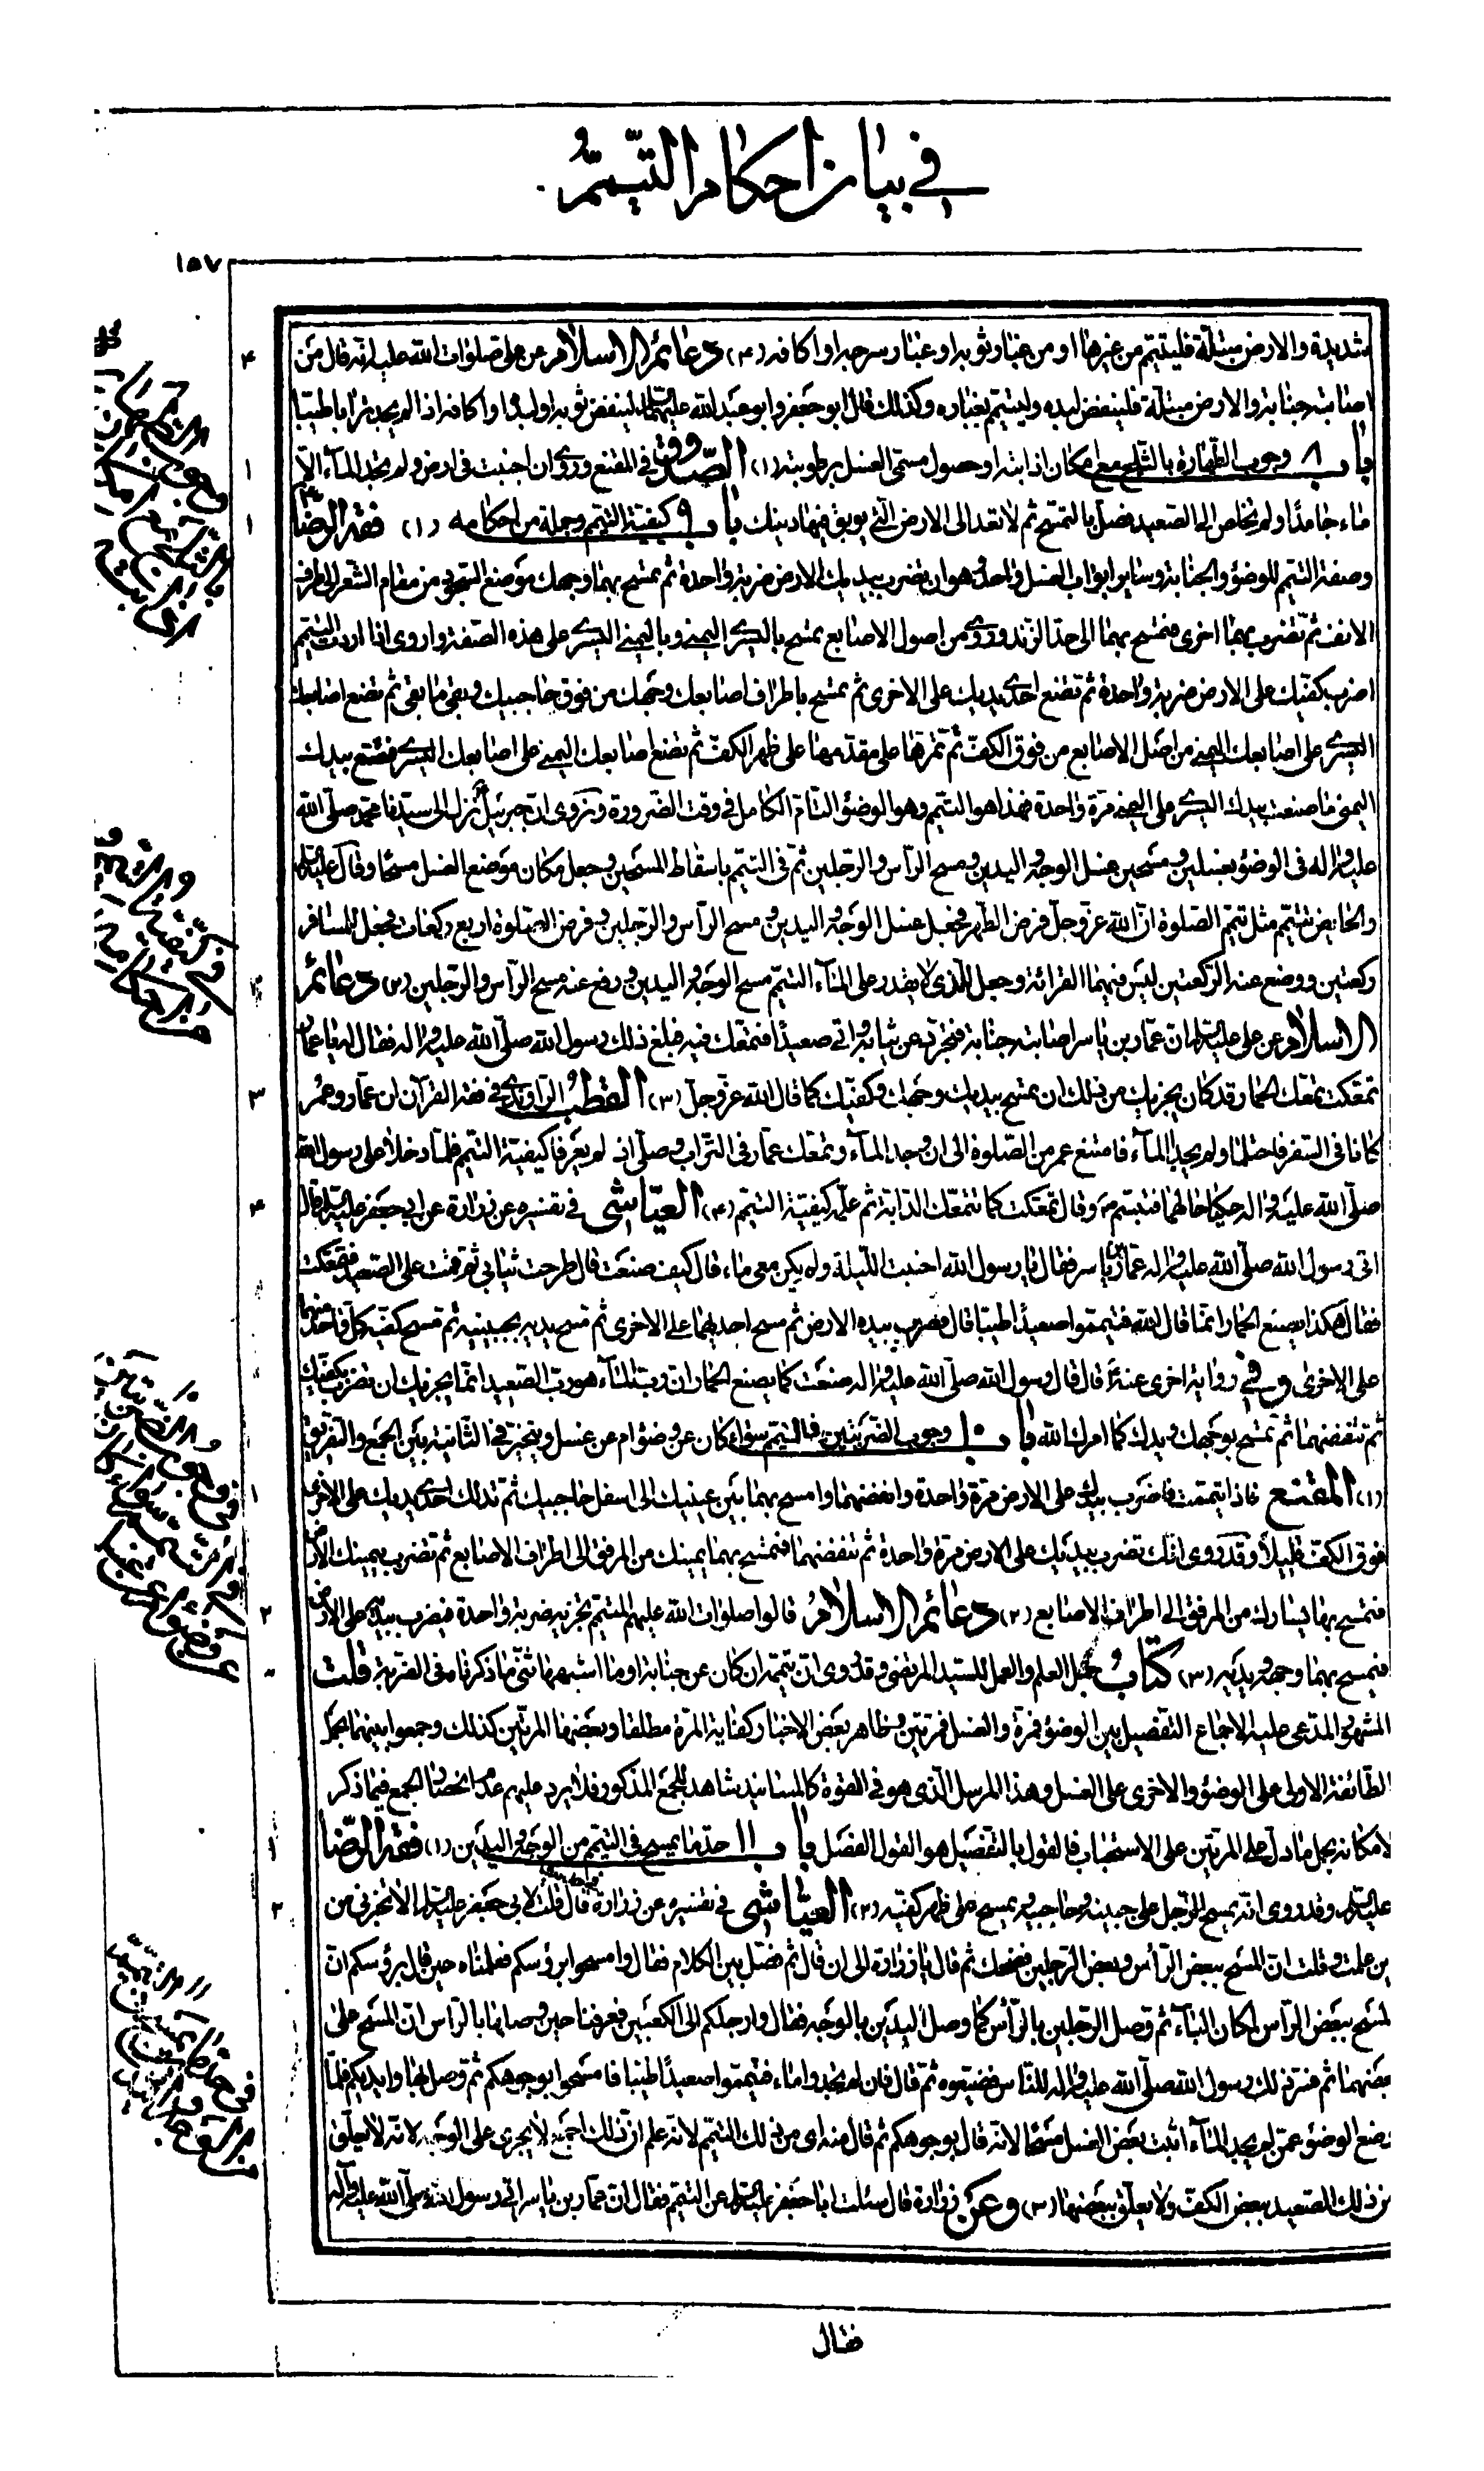 في بيان احكام التيمم
١٥٧
شديدة والارض مبتلة فليتيمم من غيرها او من غبار ثوبه او غبار سرجه او اكافه (٤) دعائم الاسلام عن علي صلوات الله عليه انه قال من
اصابته جنابة والارض مبتلة فلينفض لبده وليتيمم بغباره وكذلك قال ابو جعفر وابو عبد الله عليهما السلام لينفض ثوبه او لبده او اكافه اذا لم يجد ترابا طيبا
باب ٨ وجوب الطهارة بالثلج مع امكان اذابته او حصول مسمى الغسل برطوبته (١) الصدوق في المقنع وروى ان اجنبت في ارض ولم تجد الماء الا
ماء جامدا ولم تخلص الى الصعيد فصل بالتمسح ثم لا تعد الى الارض التي يوبق فيها دينك باب ٩ كيفية التيمم وجملة من احكامه (١) فقه الرضا
وصفة التيمم للوضوء والجنابة وساير ابواب الغسل واحد وهو ان تضرب بيديك الارض ضربة واحدة ثم تمسح بهما وجهك موضع السجود من مقام الشعر الى طرف
الانف ثم تضرب بهما اخرى فتمسح بهما الى حد الزند وروى من اصول الاصابع تمسح باليسرى اليمنى وباليمنى اليسرى على هذه الصفة واروى اذا اردت التيمم
اضرب كفيك على الارض ضربة واحدة ثم تضع احدى يديك على الاخرى ثم تمسح باطراف اصابعك وجهك من فوق حاجبيك وبقى ما بقى ثم تضع اصابعك
اليسرى على اصابعك اليمنى من اصل الاصابع من فوق الكف ثم تمرها على مقدمها على ظهر الكف ثم تضع اصابعك اليمنى على اصابعك اليسرى فتصنع بيدك
اليمنى ما صنعت بيدك اليسرى على اليمنى مرة واحدة فهذا هو التيمم وهو الوضوء التام الكامل في وقت الضرورة ونروى ان جبرئيل نزل الى سيدنا محمد صلى الله
عليه واله في الوضوء بغسلين ومسحين غسل الوجه واليدين ومسح الراس والرجلين ثم في التيمم باسقاط المسحين وجعل مكان موضع الغسل مسحا وقال عليه السلام
والحايض تتيمم مثل تيمم الصلوة ان الله عز وجل فرض الطهر فجعل غسل الوجه واليدين ومسح الراس والرجلين وفرض الصلوة اربع ركعات فجعل للمسافر
ركعتين ووضع عنه الركعتين ليس فيهما القرائة وجعل للذي لا يقدر على الماء التيمم مسح الوجه واليدين ورفع عنه مسح الراس والرجلين (٢) دعائم
الاسلام عن علي عليه السلام ان عمار بن ياسر اصابته جنابة فتجرد عن ثيابه واتى صعيدا فتمعك فيه فبلغ ذلك رسول الله صلى الله عليه واله فقال له يا عمار
تمعكت تمعك الحمار قد كان يجزيك من ذلك ان تمسح بيديك وجهك وكفيك كما قال الله عز وجل (٣) القطب الراوندي في فقه القرآن ان عمار وعمر
كانا في السفر فاحتلما ولم يجدا الماء فامتنع عمر من الصلوة الى ان وجد الماء وتمعك عمار في التراب وصلى اذ لم يعرفا كيفية التيمم فلما دخلا على رسول الله
صلى الله عليه واله حكيا حالهما فتبسم وقال تمعكت كما تتمعك الدابة ثم علمه كيفية التيمم (٤) العياشي في تفسيره عن زرارة عن ابي جعفر عليه السلام قال
اتى رسول الله صلى الله عليه واله عمار بن ياسر فقال يا رسول الله اجنبت الليلة ولم يكن معي ماء قال كيف صنعت قال طرحت ثيابي ثم قمت على الصعيد فتمعكت
فقال هكذا يصنع الحمار انما قال الله فتيمموا صعيدا طيبا قال فضرب بيده الارض ثم مسح احديهما على الاخرى ثم مسح يديه بجبينيه ثم مسح كفيه كل واحد منهما
على الاخرى وفي رواية اخرى عنه قال قال رسول الله صلى الله عليه واله صنعت كما يصنع الحمار ان رب الماء هو رب الصعيد انما يجزيك ان تضرب بكفيك
ثم تنفضهما ثم تمسح بوجهك ويديك كما امرك الله باب ١٠ وجوب الضربتين في التيمم سواء كان عن وضوء ام عن غسل ويتخير في الثانية بين الجمع والتفريق
(١) المقنع فاذا تيممت فاضرب بيديك على الارض مرة واحدة وانفضهما وامسح بهما بين عينيك الى اسفل حاجبيك ثم تدلك احدى يديك على الاخرى
فوق الكف قليلا وقد روى انك تضرب بيديك على الارض مرة واحدة ثم تنفضهما فتمسح بهما يمينك من المرفق الى اطراف الاصابع ثم تضرب بيمينك الارض
فتمسح بها يسارك من المرفق الى اطراف الاصابع (٢) دعائم الاسلام قالوا صلوات الله عليهم المتيمم تجزيه ضربة واحدة فيضرب بيديه على الارض
فيمسح بهما وجهه ويديه (٣) كتاب جمل العلم والعمل للسيد المرتضى وقد روى ان تيممه ان كان عن جنابة او ما اشبهها ثنى ما ذكرناه في الضربة قلت
المشهور المدعى عليه الاجماع التفصيل بين الوضوء فمرة والغسل فمرتين وظاهر بعض الاخبار كفاية المرة مطلقا وبعضها المرتين كذلك وجمعوا بينهما بحمل
الطائفة الاولى على الوضوء والاخرى على الغسل وهذا المرسل الذي هو في القوة كالمسانيد شاهد للجمع المذكور فلا يرد عليهم عدم انحصار الجمع فيما ذكر
لامكانه بحمل ما دل على المرتين على الاستحباب فالقول بالتفصيل هو القول الفصل باب ١١ حد ما يمسح في التيمم من الوجه واليدين (١) فقه الرضا
عليه السلام وقد روى انه يمسح الرجل على جبينه وحاجبيه ويمسح على ظهر كفيه (٢) العياشي في تفسيره عن زرارة قال قلت لابي جعفر عليه السلام الا تخبرني من
اين علمت وقلت ان المسح ببعض الرأس وبعض الرجلين فضحك ثم قال يا زرارة الى ان قال ثم فصل بين الكلام فقال وامسحوا برؤسكم فعلمنا حين قال برؤسكم ان
المسح ببعض الرأس لمكان الباء ثم وصل الرجلين بالرأس كما وصل اليدين بالوجه فقال وارجلكم الى الكعبين فعرفنا حين وصلها بالرأس ان المسح على
بعضهما ثم فسر ذلك رسول الله صلى الله عليه واله للناس فضيعوه ثم قال فان لم تجدوا ماء فتيمموا صعيدا طيبا فامسحوا بوجوهكم ثم وصل بها وايديكم فلما
وضع الوضوء عمن لم يجد الماء اثبت بعض الغسل مسحا لانه قال بوجوهكم ثم قال منه اي من ذلك التيمم لانه علم ان ذلك اجمع لا يجرى على الوجه لانه لا يعلق
من ذلك الصعيد ببعض الكف ولا يعلق ببعضها (٣) وعن زرارة قال سئلت ابا جعفر عليه السلام عن التيمم فقال ان عمار بن ياسر اتى رسول الله صلى الله عليه وآله
فقال